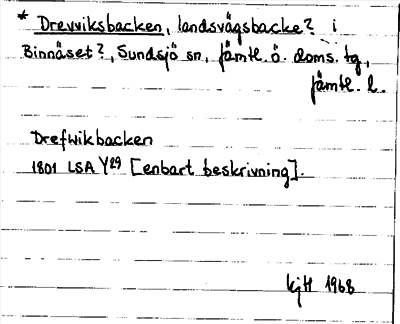 * Drevviksbacken, landsvägsbacke? i
Binnåset?, Sundsjö sn, Jämtl. ö. doms. tg,
Jämtl. l.
Drefwikbacken
1801 LSA Y29 [enbart beskrivning].
KjH 1968